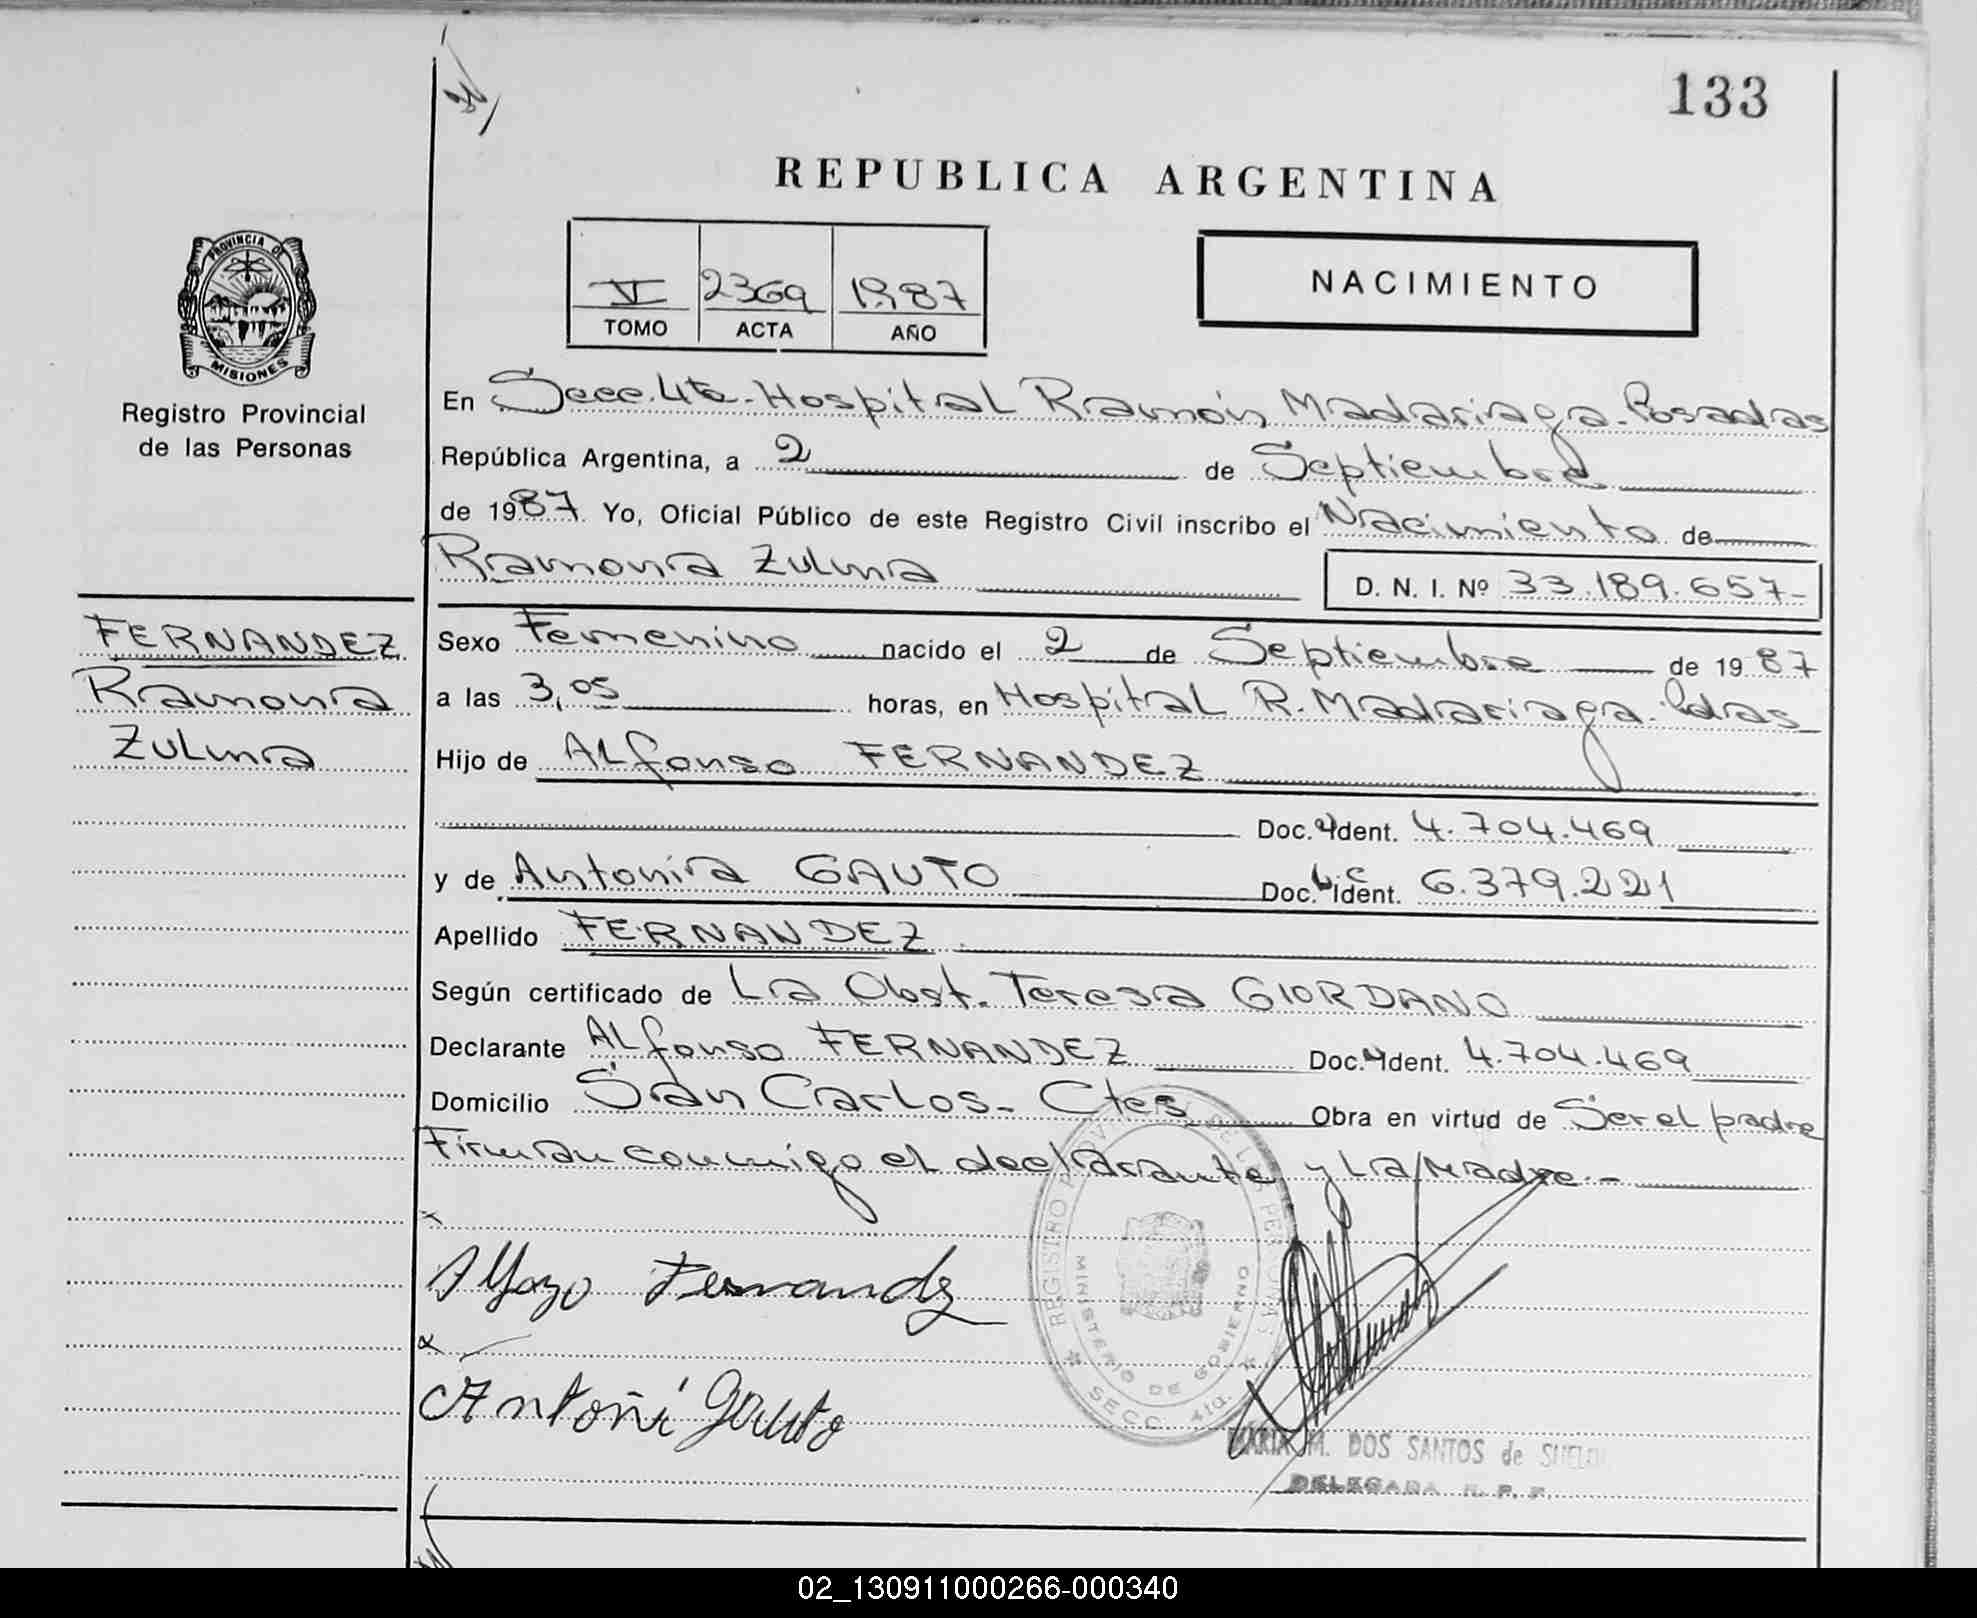 133
REPUBLICA ARGENTINA
V 2369 1987
TOMO ACTA AÑO
NACIMIENTO
PROVINCIA DE
MISIONES
Registro Provincial
de las Personas
En Secc. 4ta - Hospital Ramón Madariaga - Posadas
República Argentina, a 2 de Septiembre
de 1987. Yo, Oficial Público de este Registro Civil inscribo el Nacimiento de
Ramona Zulma
D. N. I. Nº 33.189.657-
FERNANDEZ
Ramona
Zulma
Sexo Femenino nacido el 2 de Septiembre de 1987
a las 3,05 horas, en Hospital R. Madariaga. Pdas
Hijo de ALfonso FERNANDEZ
Doc. Ident. 4.704.469
y de Antonia GAUTO Doc. Ident. 6.379.221
Apellido FERNANDEZ
Según certificado de La Obst. Teresa GIORDANO
Declarante ALfonso FERNANDEZ Doc. Ident. 4.704.469
Domicilio San Carlos - Ctes Obra en virtud de Ser el padre
Firman conmigo el declarante y La Madre.-
REGISTRO PROV DE LAS PERSONAS
MINISTERIO DE GOBIERNO
SECC. 4ta.
Fernandz
Antoñi Gauto
MARIA M. DOS SANTOS de
DELEGADA R. P. P.
02_130911000266-000340